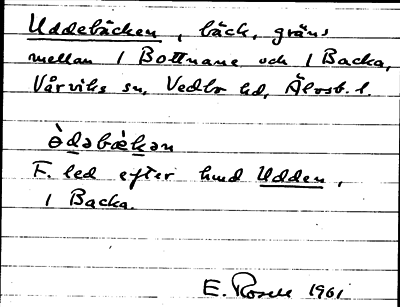 Uddebäcken, bäck, gräns
mellan 1 Bottnane och 1 Backa,
Vårviks sn, Vedbo hd, Älvsb. l.
ə̀dəbæ̀kən
F. led efter hmd Udden,
1 Backa.
E. Rosell 1961